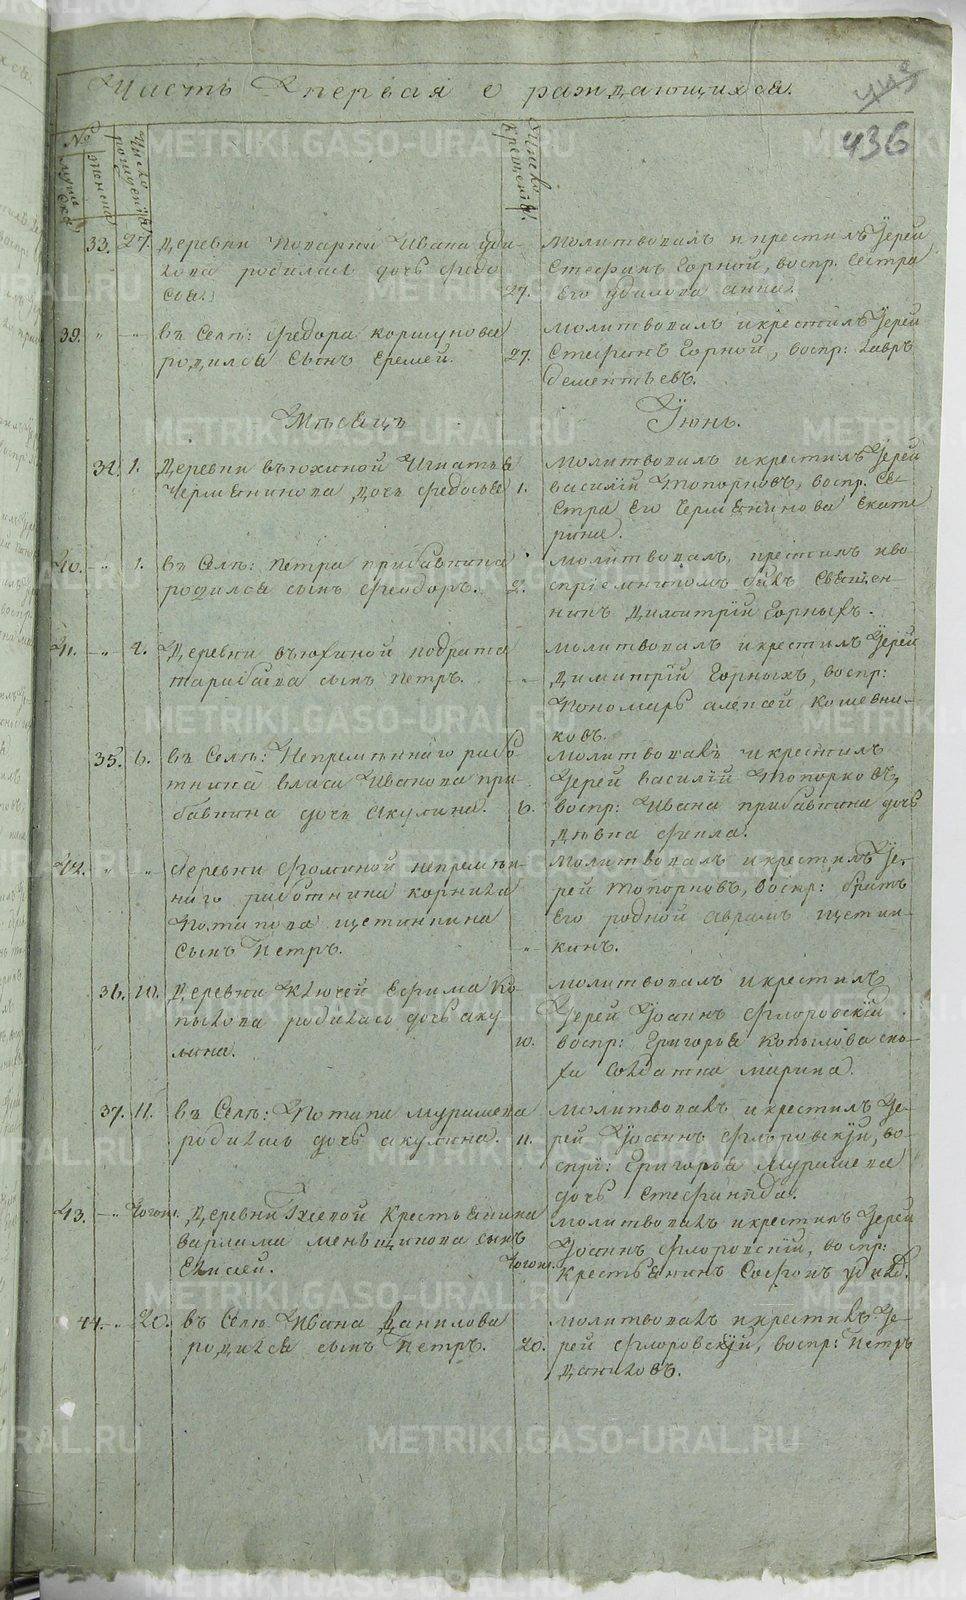 Часть первая о раждающихся.
436
№
мужеска
женска
Число рождения
Число крещения.
33. 27. Деревни Поварни Ивана Уди-
лова родилась дочь Федо
сья.
27.
молитвовалъ и крестилъ Іерей
Стефанъ Горной, воспр. Сестра
Его Удилова Анна.
39. " -"- въ Селѣ: Федора Коршунова
родился Сынъ Еремей.
27.
молитвовалъ и крестилъ Іерей
Стефанъ Горной, воспр: Лавръ
Дементьевъ.
Мѣсяцъ Іюнь.
34. 1. Деревни Вьюхиной Игнатья
Чермянинова дочь Федосья
1.
молитвовалъ и крестилъ Іерей
Василій Топорковъ, воспр. Се-
стра Его Чермянинова Екате
рина.
40. -"- 1. въ Селѣ: Петра Прибавкина
родился сынъ Феодоръ.
2.
молитвовалъ, крестилъ и во-
спріемникомъ былъ Священ-
никъ Димитрій Горныхъ.
41. -"- 2. Деревни Вьюхиной Кодрата
Тарибаева сынъ Петръ.
-"-
молитвовалъ и крестилъ Іерей
Димитрій Горныхъ, воспр:
Пономарь Алексей Кошевни-
ковъ.
35. 6. въ Селѣ: Непремѣннаго рабо
тника Власа Иванова При-
бавкина дочь Акулина.
6.
молитвовалъ и крестилъ
Іерей Василій Топорковъ,
воспр: Ивана Прибавкина дочь
Дѣвка Фекла.
42. " " деревни Фоминой непремѣн-
наго работника Корнила
Потапова Щетинкина
Сынъ Петръ.
-"-
молитвовалъ и крестилъ Іе-
рей Топорковъ, воспр: братъ
Его родной Аврамъ Щетин-
кинъ.
36. 10. Деревни Ключей Ефима Ко
пылова родилась дочь Аку
лина.
10.
молитвовалъ и крестилъ
Іерей Іоаннъ Флоровскій
воспр: Григорья Копылова сно-
ха Солдатка Марина.
37. 11. въ Селѣ: Потапа Мурашева
родилась дочь Акулина.
11.
молитвовалъ и крестилъ Іе-
рей Іоаннъ Флоровскій, во-
спрі: Григорья Мурашева
дочь Стефанида.
43. -"- Тогож. Деревни Глевой Крестьянина
Варлама Меньщикова сынъ
Елисей.
Тогож.
молитвовалъ и крестилъ Іерей
Іоаннъ Флоровскій, воспр:
Крестьянинъ Софонъ
44. -"- 20. въ Селѣ Ивана Данилова
родился сынъ Петръ.
20.
молитвовалъ и крестилъ Іе-
рей Флоровскій, воспр: Петръ
Даниловъ.
METRIKI.GASO-URAL.RU